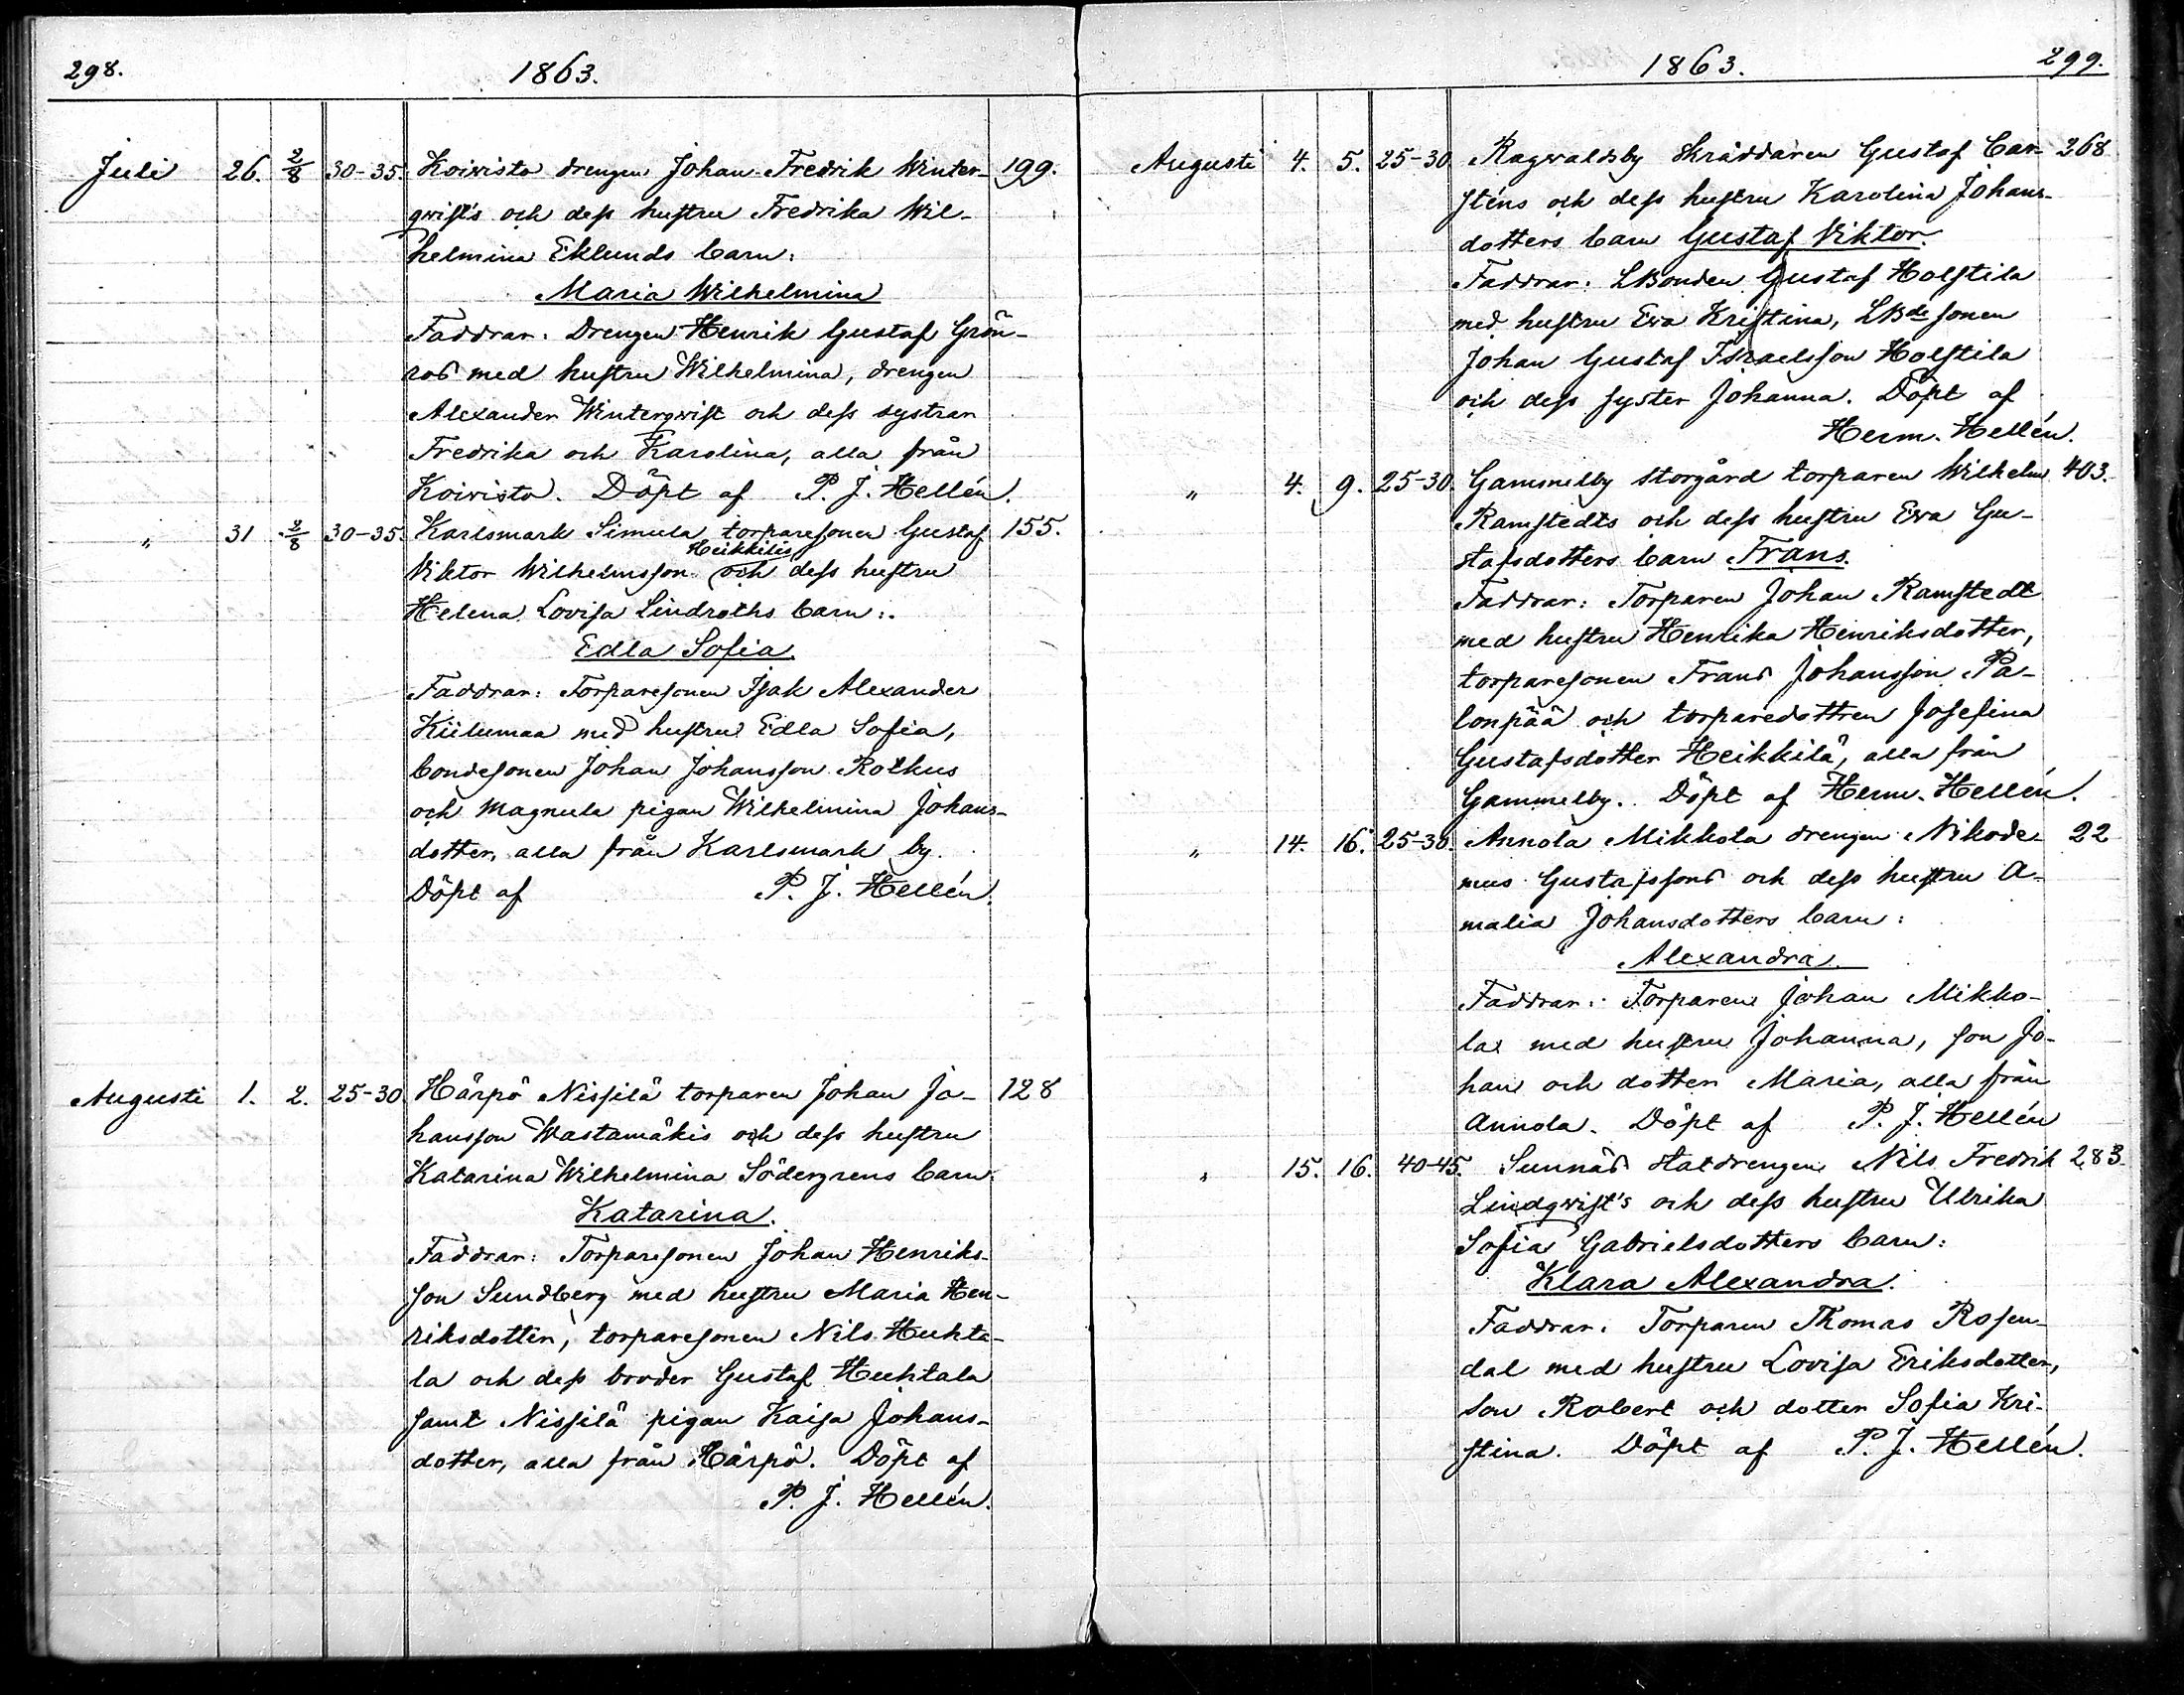 298.
1863.
Juli 26. 2/8 30-35. Koivisto drengen Johan Fredrik Winter- 199.
qwist's och dess hustru Fredrika Wil-
helmina Eklunds barn:
Maria Wilhelmina
Faddrar: Drengen Henrik Gustaf Grön-
ros med hustru Wilhelmina, drengen
Alexander Winterqwist och dess systrar
Fredrika och Karolina, alla från
Koivisto. Döpt af P. J. Hellén.
" 31 2/8 30-35. Karlsmark Simula torparesonen Gustaf 155.
Heikkilis
Viktor Wilhelmsson och dess hustru
Helena Lovisa Lindroths barn:
Edla Sofia.
Faddrar: Torparesonen Isak Alexander
Kiilumaa med hustru Edla Sofia,
bondesonen Johan Johansson Rotkus
och Magnula pigan Wilhelmina Johans-
dotter, alla från Karlsmark by.
Döpt af P. J. Hellén.
Augusti 1. 2. 25-30 Härpö Nissilä torparen Johan Jo- 128
hansson Wastamäkis och dess hustru
Katarina Wilhelmina Södergrens barn:
Katarina.
Faddrar: Torparesonen Johan Henriks-
son Sundberg med hustru Maria Hen-
riksdotter, torparesonen Nils Huhta-
la och dess broder Gustaf Huhtala
samt Nissilä pigan Kaisa Johans-
dotter, alla från Härpö. Döpt af
P. J. Hellén.
1863.
299.
Augusti 4. 5. 25-30. Ragvaldsby Skräddaren Gustaf Car- 268
sténs och dess hustru Karolina Johans-
dotters barn Gustaf Viktor.
Faddrar: LBonden Gustaf Holstila
med hustru Eva Kristina, LBde sonen
Johan Gustaf Israelsson Holstila
och dess syster Johanna. Döpt af
Herm. Hellén.
" 4. 9. 25-30. Gammelby Storgård torparen Wilhelm 403.
Ramstedts och dess hustru Eva Gu-
stafsdotters barn Frans.
Faddrar: Torparen Johan Ramstedt
med hustru Henrika Henriksdotter,
torparesonen Frans Johansson Pa-
lonpää och torparedottren Josefina
Gustafsdotter Heikkilä, alla från
Gammelby. Döpt af Herm. Hellén.
" 14. 16. 25-30. Annola Mikkola drengen Nikode- 22
mus Gustafssons och dess hustru A-
malia Johansdotters barn:
Alexandra.
Faddrar: Torparen Johan Mikko-
la med hustru Johanna, son Jo-
han och dotter Maria, alla från
Annola. Döpt af P. J. Hellén
" 15. 16. 40-45. Sunnäs Statdrengen Nils Fredrik 283.
Lindqvist's och dess hustru Ulrika
Sofia Gabrielsdotters barn:
Klara Alexandra.
Faddrar: Torparen Thomas Rosen-
dal med hustru Lovisa Eriksdotter,
son Robert och dotter Sofia Kri-
stina. Döpt af P. J. Hellén.